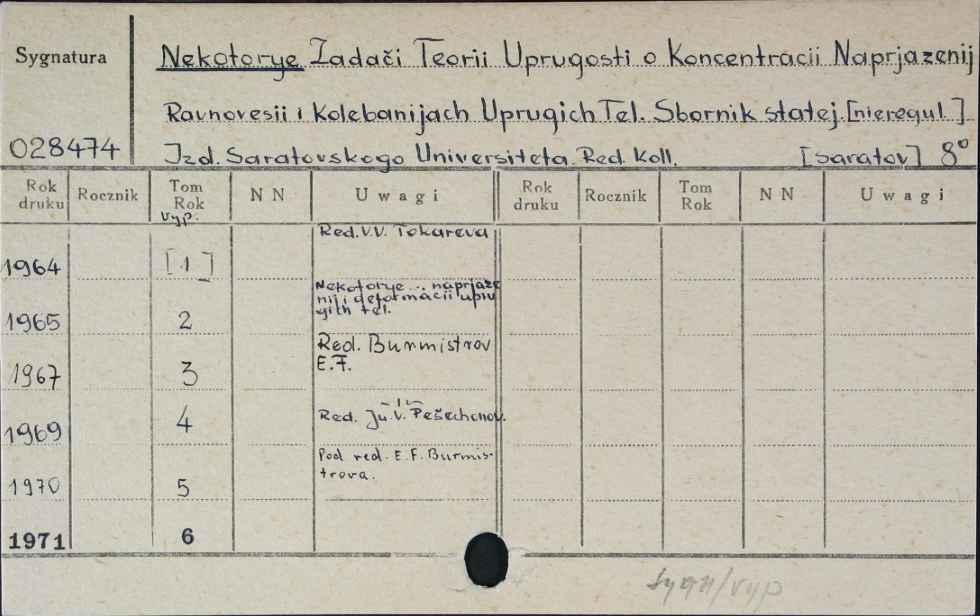 Sygnatura
Nekotorye Zadači Teorii Uprugosti o Koncentracii Naprjazenij
Ravnovesii i Kolebanijach Uprugich Tel. Sbornik statej. [nieregul.]
028474
Izd. Saratovskogo Universiteta. Red. Koll. [Saratov] 8°
Rok druku Rocznik Tom Rok NN Uwagi Rok druku Rocznik Tom Rok NN Uwagi
Vyp.
1964 [1] Red. V.V. Tokareva
1965 2 Nekotorye... naprjaze
nij i deformacii upru
gich tel.
1967 3 Red. Burmistrov
E.F.
1969 4 Red. Ju. V. Pešechonov.
1970 5 Pod red. E.F. Burmis-
trova.
1971 6
Sygn/Vyp